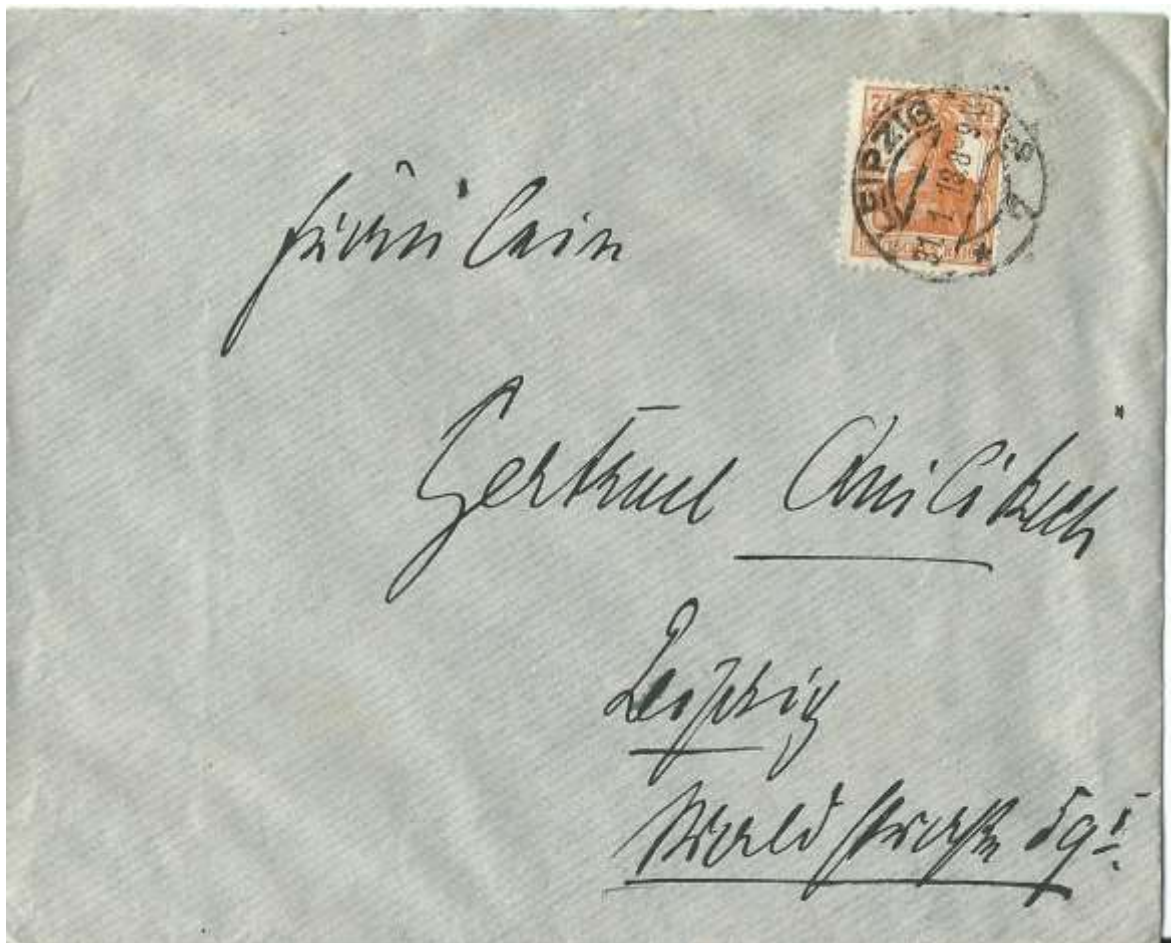 LEIPZIG
31 1 18 8-9
7½
Fräulein
Gertrud
Leipzig
Waldstraße 59 I